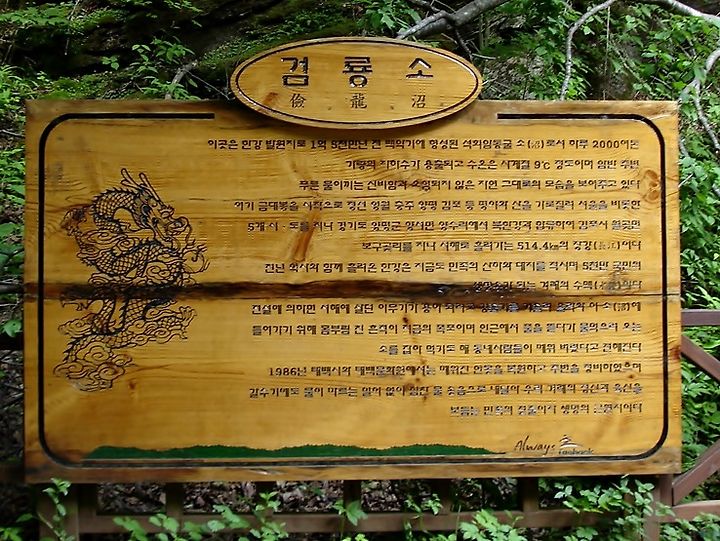 검룡소
儉 龍 沼
이곳은 한강 발원지로 1억 5천만년 전 백악기에 형성된 석회암동굴 소(沼)로서 하루 2000여톤
가량의 지하수가 용출되고 수온은 사계절 9℃ 정도이며 암반 주변
푸른 물이끼는 신비함과 오염되지 않은 자연 그대로의 모습을 보여주고 있다
여기 금대봉을 시작으로 정선 영월 충주 양평 김포 등 평야와 산을 가로질러 서울을 비롯한
5개 시·도를 지나 경기도 양평군 양서면 양수리에서 북한강과 합류하여 김포시 월곶면
보구곶리를 지나 서해로 흘러가는 514.4km의 장강(長江)이다
천년 역사와 함께 흘러온 한강은 지금도 민족의 산하와 대지를 적시며 5천만 국민의
겨레의 수맥
전설에 의하면 서해에 살던 이무기가 용이 되려고 이 소(沼)에
들어가기 위해 몸부림 친 흔적이 지금의 폭포이며 인근에서 물을 먹다가 물먹으러 오는
소를 잡아 먹기도 해 동네사람들이 메워 버렸다고 전해진다
1986년 태백시와 태백문화원에서는 메워진 연못을 복원하고 주변을 정비하였으며
갈수기에도 물이 마르는 일이 없이 힘찬 물 솟음으로 내일의 우리 겨레의 정신과 육신을
보듬는 민족의 젖줄이자 생명의 근원지이다
Always Taebaek